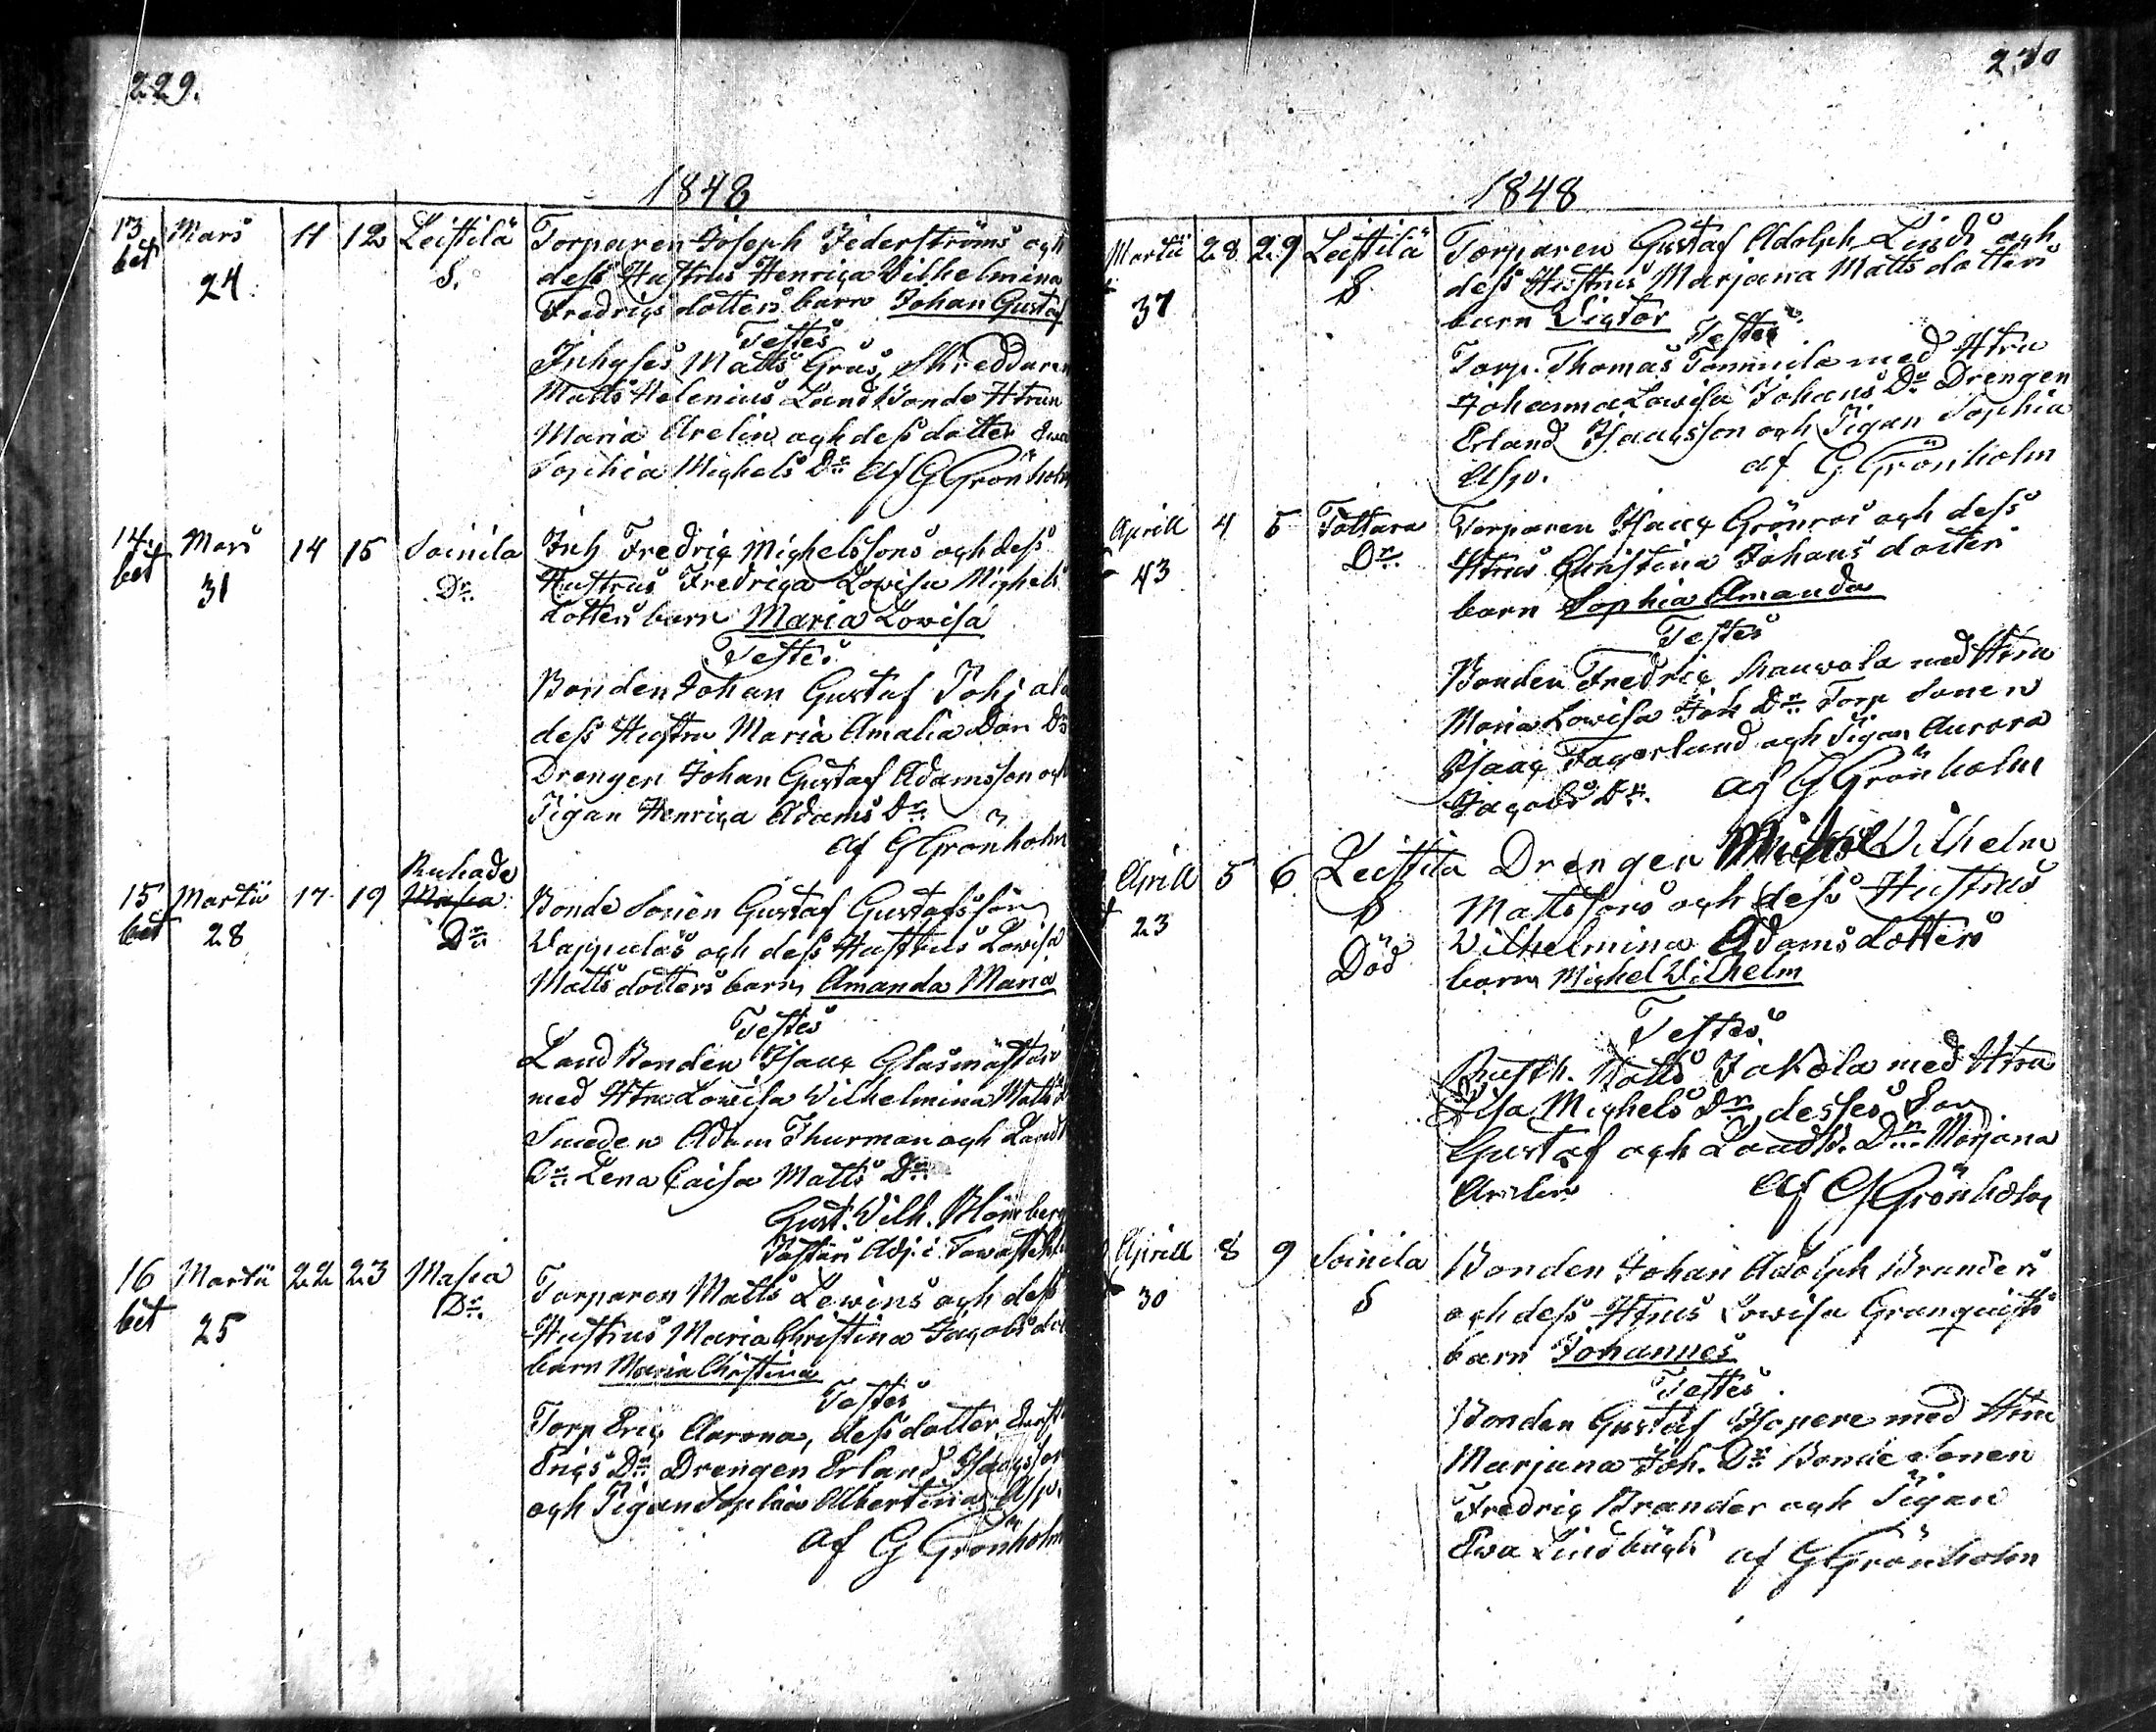 229.
1848
13 Mars 11 12 Leistilä Torparen Joseph Federströms och
bet 24 S. dess Hustrus Henrica Vilhelmina
Fredrics dotters barn Johan Gustaf
Testes
Inhyses Matts Grås, Skreddaren
Matts Helenius Landbonde Htrun
Maria Arelin och dess dotter Ewa
Sophia Michels Dr af G Grönholm
14. Mars 14 15 Soinila Inh Fredric Michelssons och dess
bet 31 Dr. Hustrus Fredrica Lowisa Michels
dotters barn Maria Lowisa
Testes
Bonden Johan Gustaf Pohj ala
dess Hustru Maria Amalia Dan Dr
Drengen Johan Gustaf Adamsson och
Pigan Henrica Adams Dr.
af G Grönholm
Ruhade
15 Martii 17 19 Masia Bonde Sonen Gustaf Gustafsson
bet 28 Dr. Wappulas och dess Hustrus Lowisa
Matts dotters barn Amanda Maria
Testes
Land Bonden Isaac Glasmästare
med Htru Lowisa Vilhelmina Matts d
Smeden Adam Thurman och Landb
Dr. Lena Caisa Matts Dr.
Gust. Vilh. Blomberg
Pastors Adj. i Tawastkyl
16 Martii 22 23 Masia Torparen Matts Lewins och dess
bet 25 Dr. Hustrus Maria Christina Jacobs dot
barn Maria Christina
Testes
Torp Eric Aarona, dess dotter
Erics Dr. Drengen Erland Isacsson
och Pigan Sophia Albertina Asp.
af G Grönholm
230
1848
Martii 28 29 Leistilä Torparen Gustaf Adolph Linds och
37 S dess Hustrus Marjana Matts dotters
barn Victor
Testes
Torp. Thomas Tommila med Htru
Johanna Lowisa Johans Dr Drengen
Erland Isaacsson och Pigan Sophia
Asp. af G Grönholm
Aprill 4 5 Tottara Torparen Isaac Grönros och dess
43 Dr. Htrus Christina Johans dotters
barn Sophia Amanda
Testes
Bonden Fredric Kauwola med Htru
Maria Lowisa Joh Dr. Torp Sonen
Isaac Fagerlund och Pigan Aurora
Jacobs Dr. af G Grönholm
Aprill 5 6 Leistila Drengen Michel Vilhelm
23 S Mattssons och dess Hustrus
Död Wilhelmina Adams dotters
barn Michel Vilhelm
Testes
Rusth. Matts Jakola med Htru
Lisa Michels Dr, desses Son
Gustaf och Landb. Dr. Marjana
Arelin af G Grönholm
Aprill 8 9 Soinila Bonden Johan Adolph Branders
30 S och dess Htrus Lowisa Granquists
barn Johannes
Testes
Bonden Gustaf Isopere med Htru
Marjana Joh. Dr Bonde Sonen
Fredric Brander och Pigan
Ewa af G Grönholm